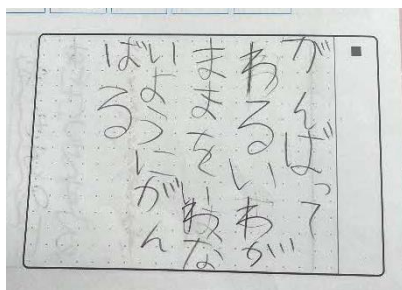 がんばって
わるいわが
ままをいわな
いようにがん
ばる